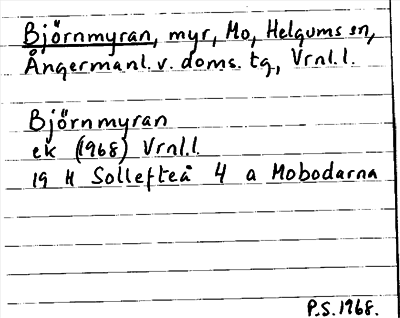 Björnmyran, myr, Mo, Helgums sn,
Ångermanl. v. doms. tg, Vrnl.l.
Björnmyran
ek (1968) Vrnl.l.
19 H Sollefteå 4 a Mobodarna
P.S. 1968.